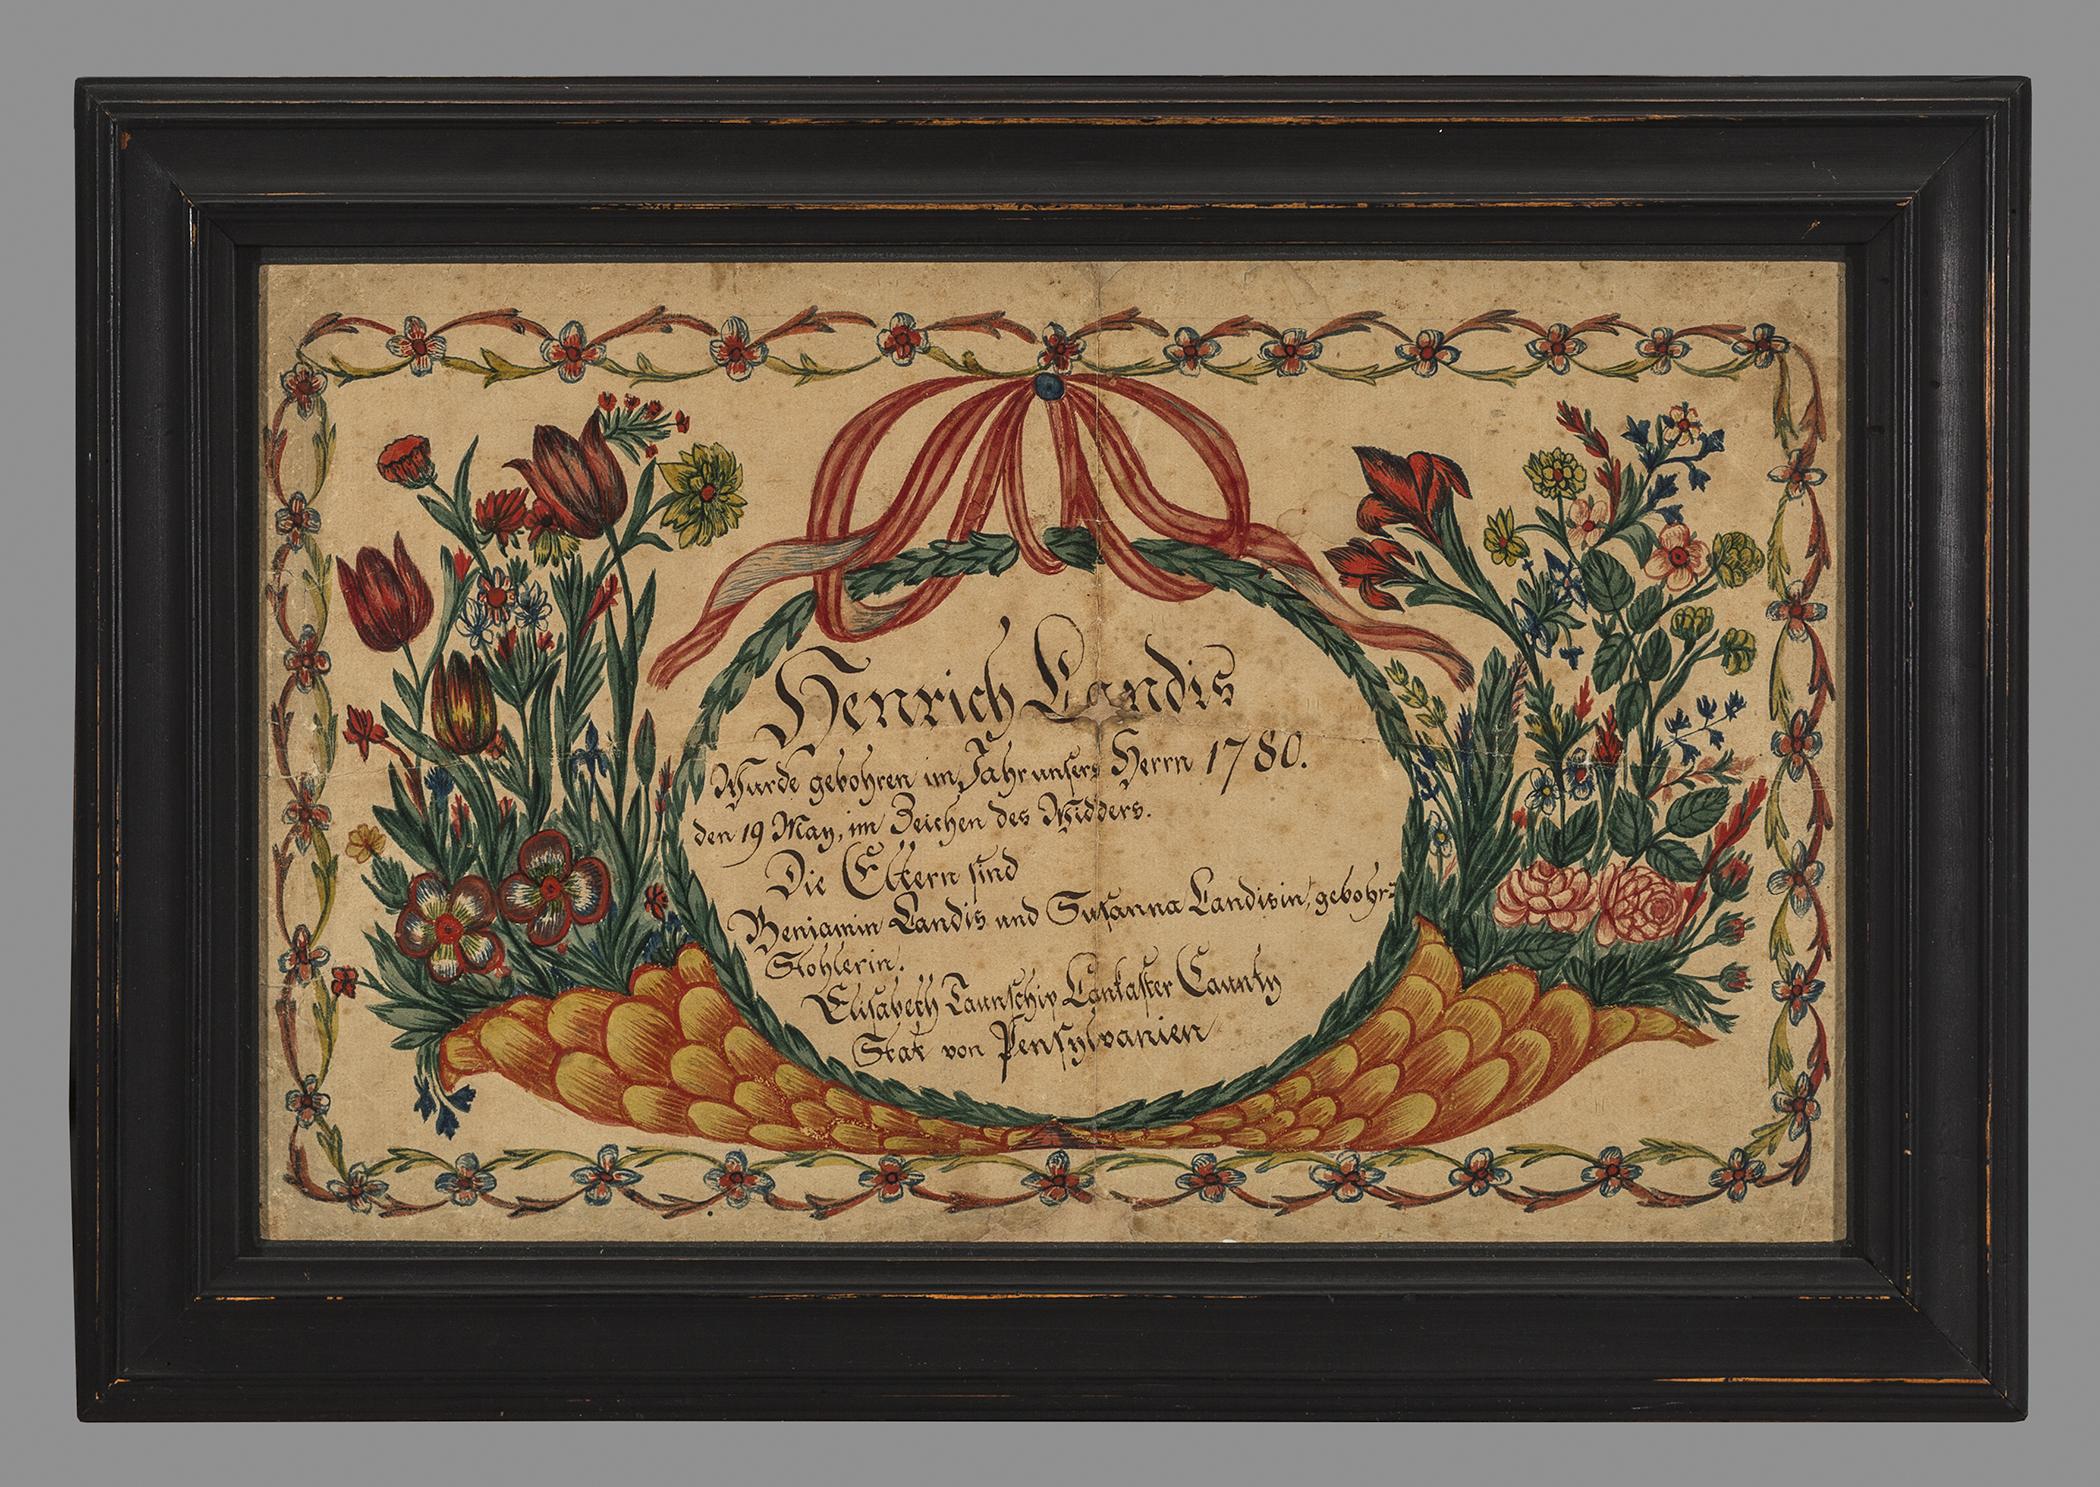 Henrich Landis
Wurde gebohren im Jahr unsers Herrn 1780.
den 19 May, im Zeichen des Widders.
Die Eltern sind
Beniamin Landis und Susanna Landisin, gebohr=
Stohlerin.
Elisabeth Taunschip Lankaster Caunty
Stat von Pensylvanien